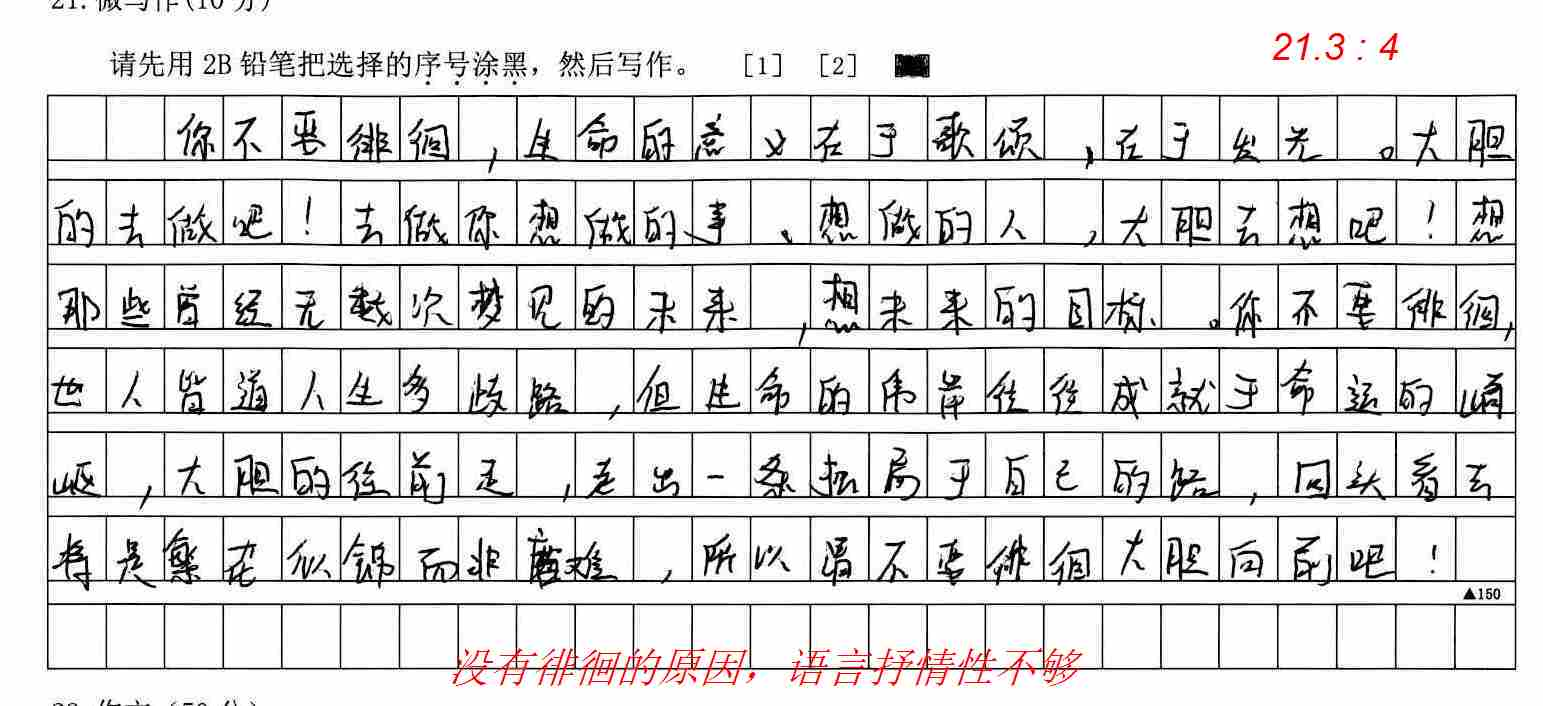 21. 微写作(10 分)
请先用 2B 铅笔把选择的序号涂黑，然后写作。 [1] [2]
21.3 : 4
你不要徘徊，生命的意义在于歌颂，在于发光。大胆
的去做吧！去做你想做的事、想做的人，大胆去想吧！想
那些曾经无数次梦见的未来，想未来的目标、。你不要徘徊，
世人皆道人生多歧路，但生命的伟岸往往成就于命运的崎
岖，大胆的往前走，走出一条独属于自己的路，回头看去
将是繁花似锦而非磨难，所以请不要徘徊大胆向前吧！
▲150
没有徘徊的原因，语言抒情性不够